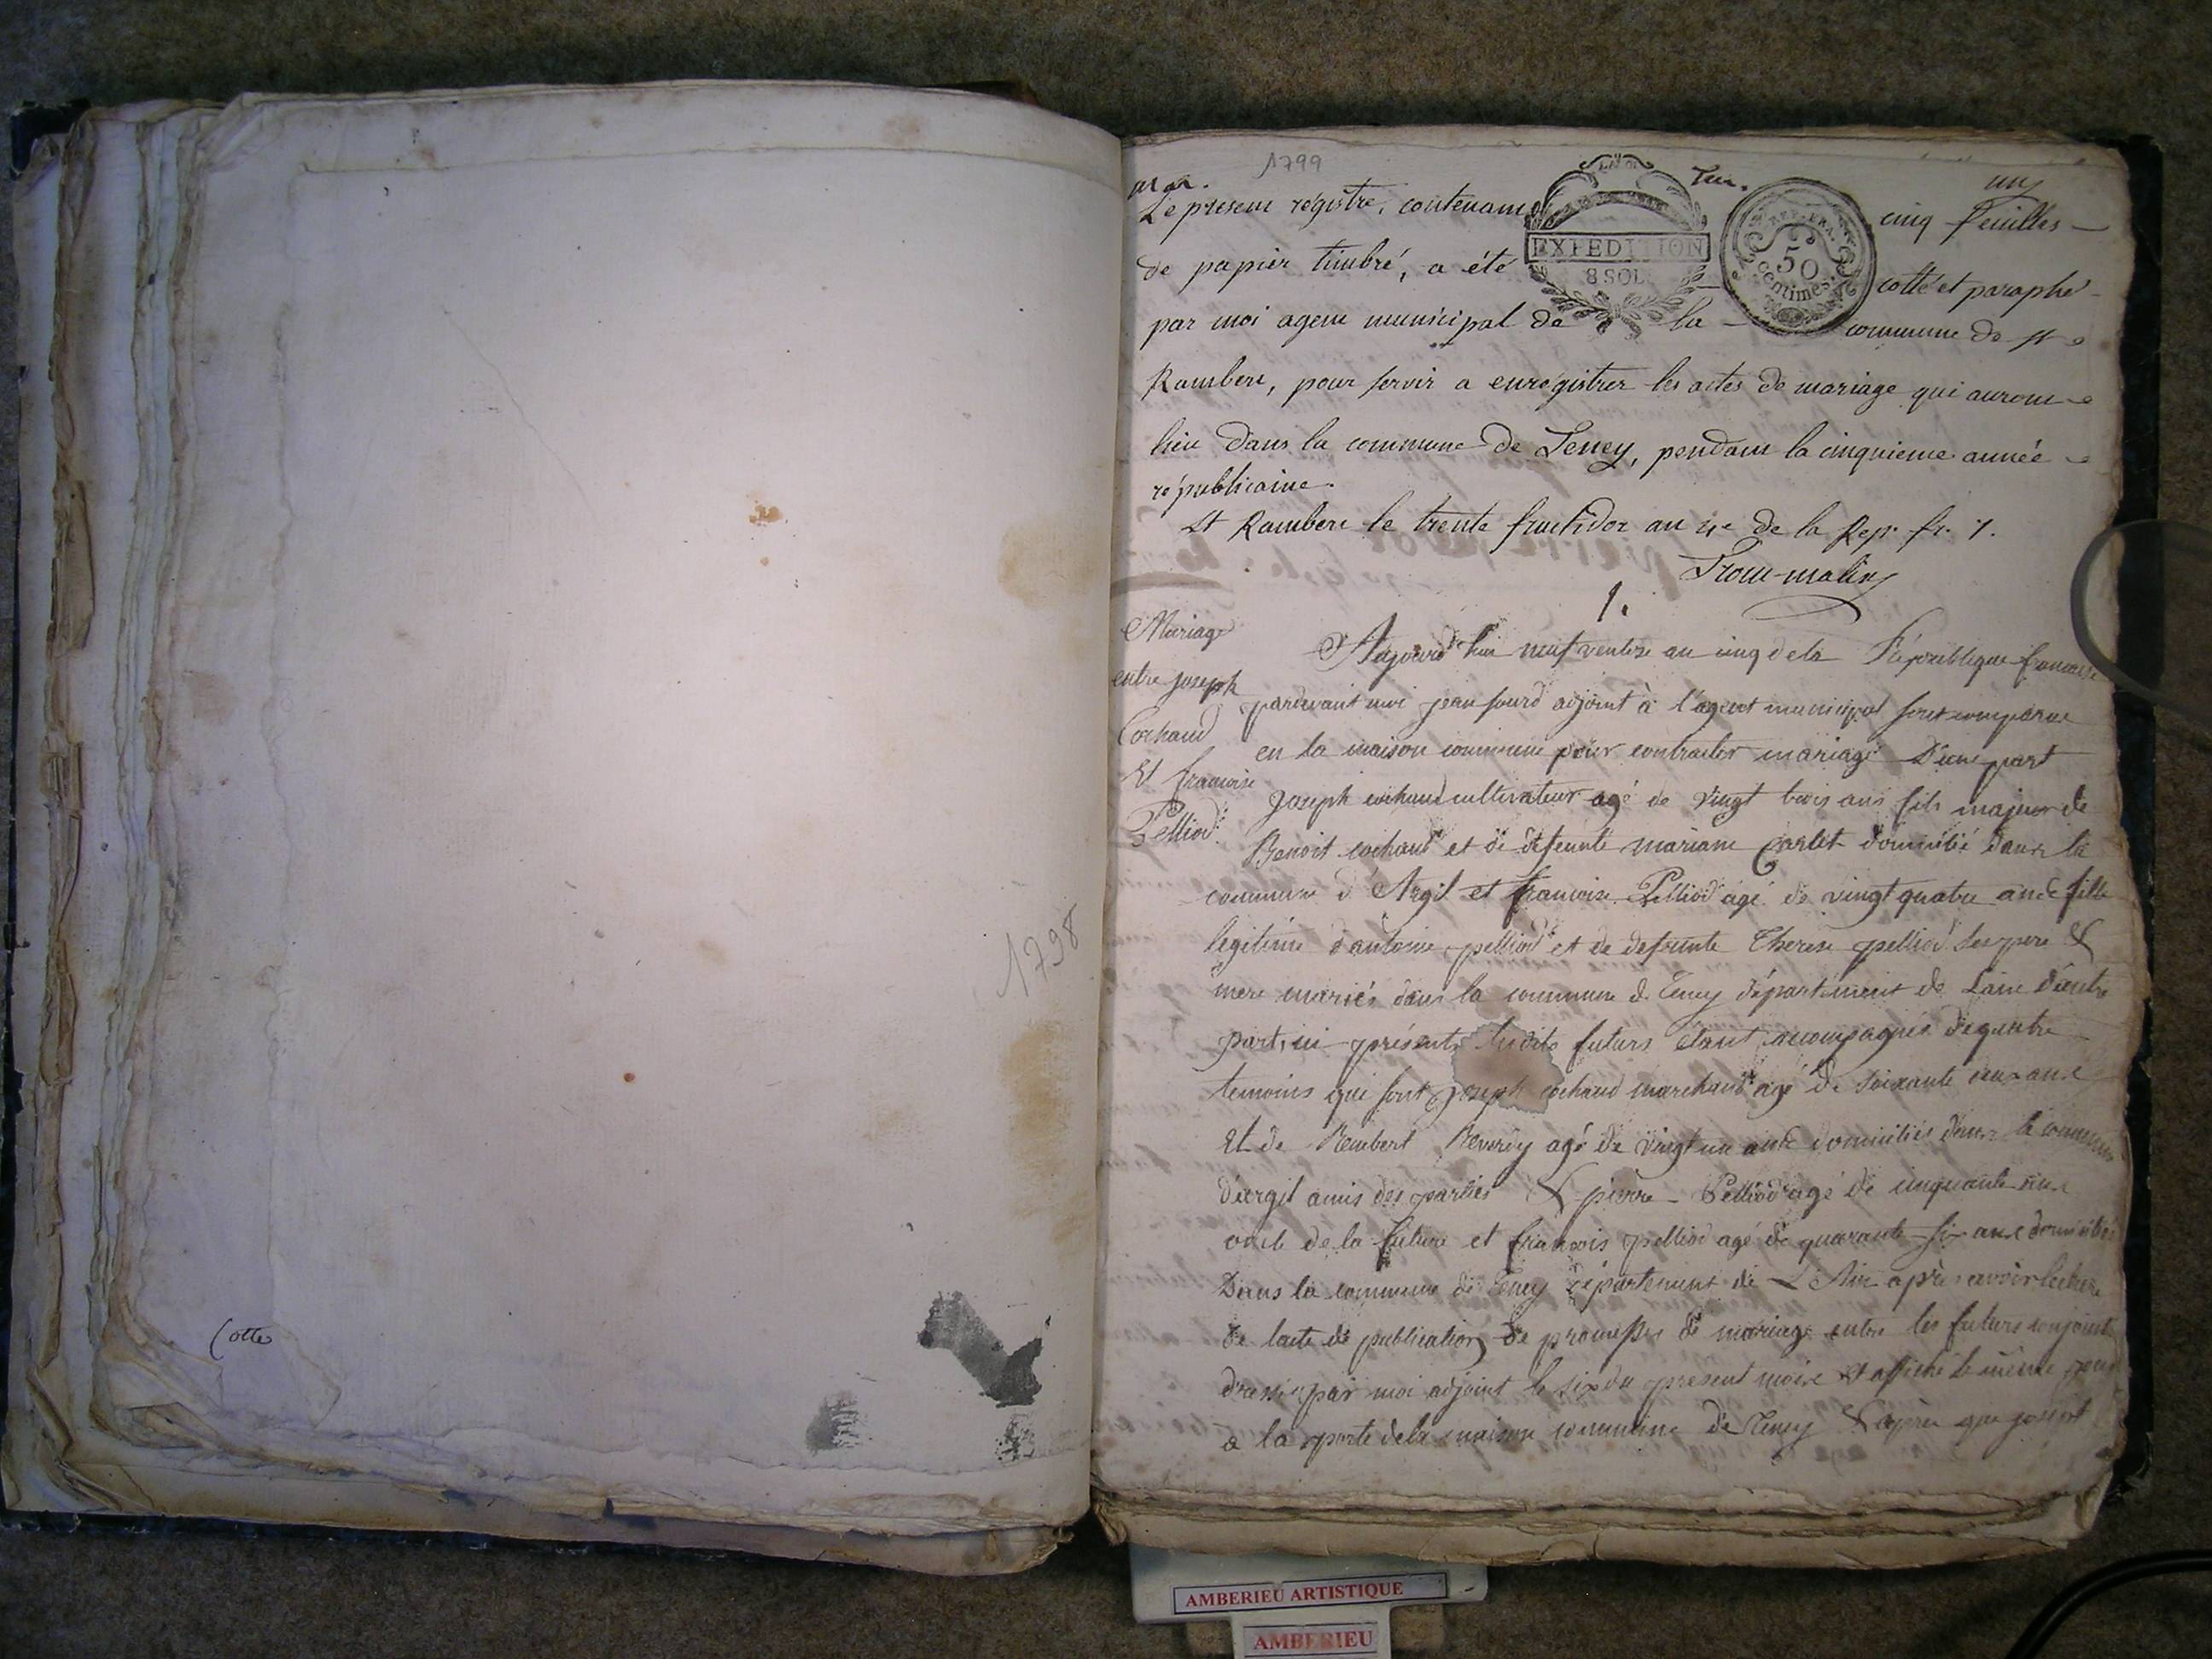 1798
Cotte
1799
mar.
Ten.
un
Le present régistre, contenant cinq feuilles
LA LOI
EXPEDITION
8 SOLS
REP. FRA.
50
centimes
de papier timbré, a été cotté et paraphé
par moi agent municipal de la commune de St
Rambert, pour servir a enrégistrer les actes de mariage qui auront
lieu dans la commune de Teney, pendant la cinquieme année
républicaine.
St Rambert le trente fructidor an 4e de la Rep. fr. 1.
Trou-molin
1.
Mariage
entre joseph
Cochaud
Et francoise
Pelliod
Aujourd'hui neuf ventose an cinq dela République francaise
pardevant moi jean sourd adjoint à l'agent municipal sont comparue
en la maison commune pour contracter mariage D'une part
Joseph cochaud cultivateur agé de vingt trois ans fils majeur de
Benoit cochaud et de defeunte mariane Carlet domicilié dans la
commune d Argil et francoise Pelliod agé de vingt quatre ans fille
legitime d'antoine pelliod et de defeunte Therese pelliod ses pere &
mere mariés dans la commune de Teney département de Laine d'autre
part, ici présents lesdits futurs étant acompagnés de quatre
temoins qui sont joseph cochaud marchand agé de soixante deux ans
Et de Rembert Reverdy agé de vingt un ans domiciliés dans la commune
d'argil amis des parties & pierre Pelliod agé de cinquante ans
oncle de la future et francois pelliod agé de quarante six ans domiciliés
Dans la commune de Teney département de L'Ain après avoir lecture
de lacte de publication de promesses de mariage entre les futurs conjoints
dressé par moi adjoint le six du present moise et affiché le même jour
a la porte dela maison commune de Teney & après que joseph
AMBERIEU ARTISTIQUE
AMBERIEU